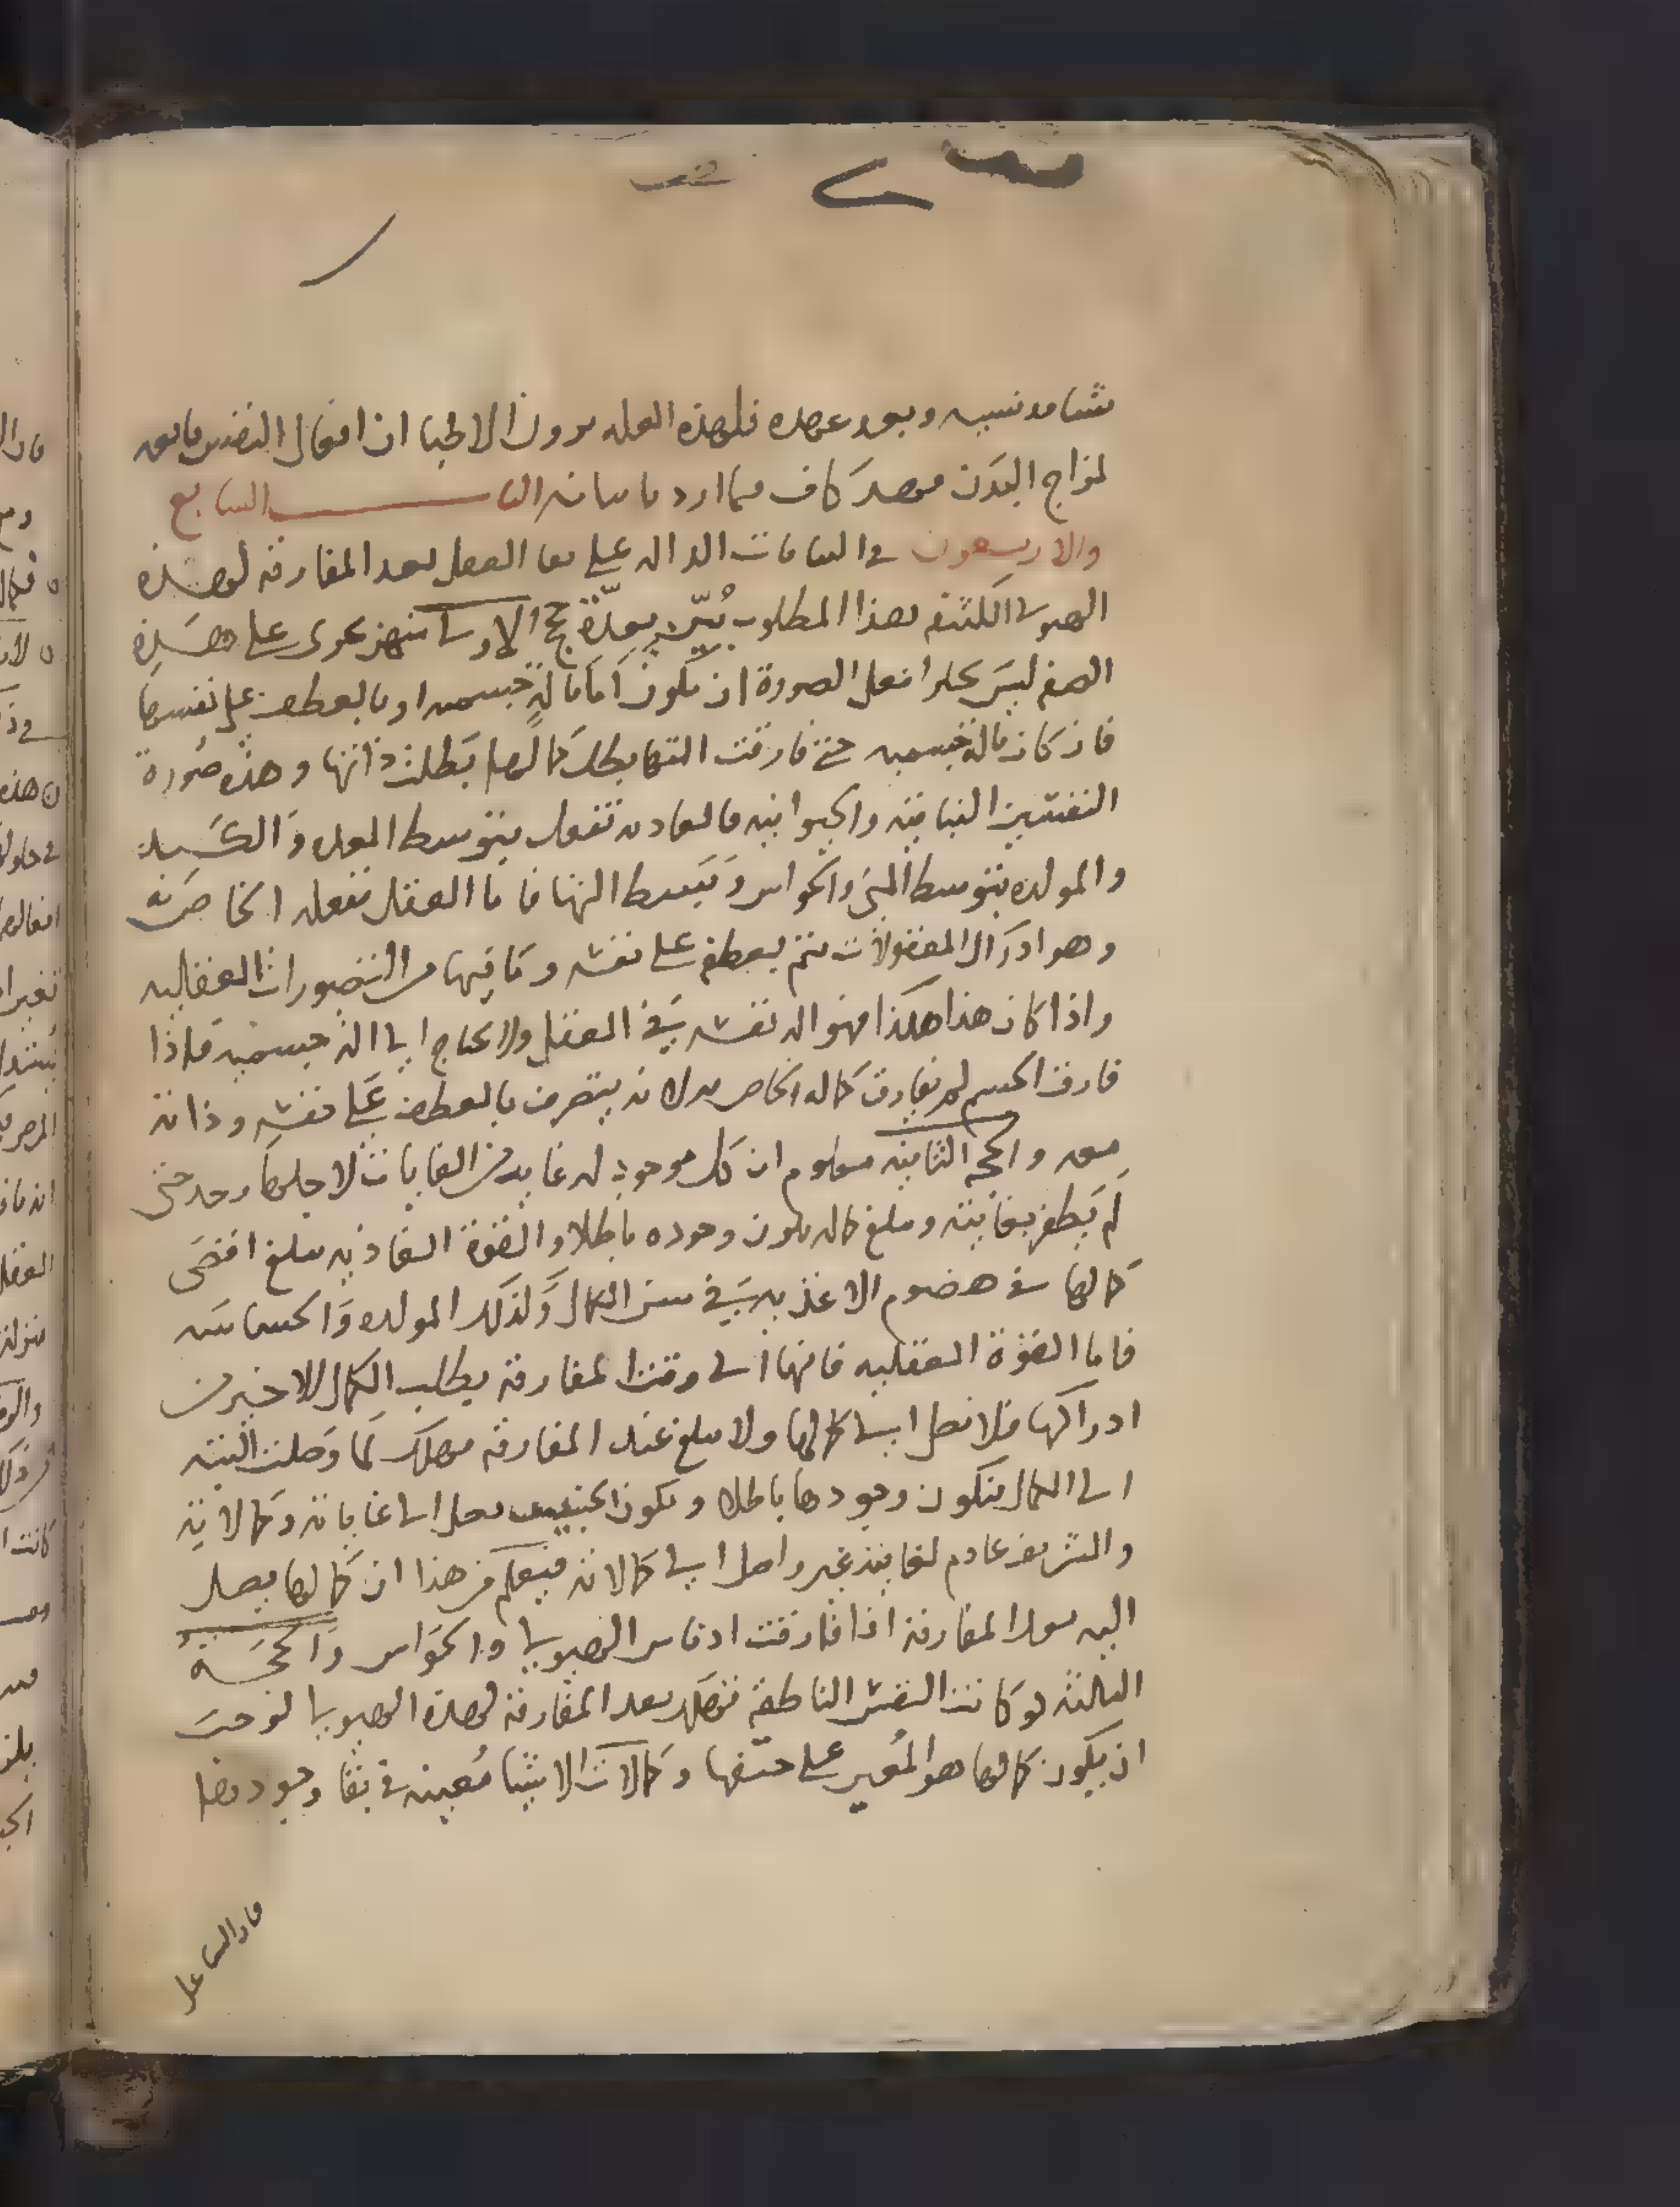 فلهذه العله يرون الاطبا ان افعال النفس تابعه
لمزاج البدن فهذا كاف فيما اردنا بيانه البــاب السابع
والاربعون في البيانات الداله على بقا العقل بعد المفارقه لهذه
الهيولى هذا المطلوب يبين بعدة حجج الاولى تجرى على هذه
الصفه ليس يخلوا فعل الصورة ان يكون اما بالة جسميه او بالعطف على نفسها
فان كان بالة جسميه حتى فارقت التها بطل كمالها بطلت ذاتها وهذه صورة
النفسين النباتيه والحيوانيه فالغاديه تفعل بتوسط المعده والكبد
والمولده بتوسط المنى والحواس وتتوسط التها فاما العقل ففعله الخاص به
وهو ادراك المعقولات يتم بعطفه على نفسه وما فيها من التصورات العقليه
واذا كان هذا هكذا فهو اله نفسه في العقل ولا يحتاج الى اله جسميه فاذا
فارق الجسم لم يفارق كماله الخاص به لانه يتصرف بالعطف على نفسه وذاته
معه والحجه الثانيه معلوم ان كل موجود له غايه من الغايات لاجلها وجد متى
لم يظفر بغايته ويبلغ كماله يكون وجوده باطلا والقوة الغاذيه تبلغ اقصى
كمالها في هضوم الاغذيه في سن الكمال وكذلك المولده والحساسه
فاما القوة العقليه فانها الى وقت المفارقه يطلب الكمال الاخير من
ادراكها فلا تصل الى كمالها ولا تبلغ عند المفارقه فهلك لما وصلت البته
الى الكمال فتكون وجودها باطلا ويكون الخسيس يصل الى غاياته وكمالاته
والشريف عادم لغايته غير واصل الى كمالاته فيعلم من هذا ان كمالها يصل
اليه بعد المفارقه اذا فارقت ادناس الهيولى والحواس والحجــة
الثالثه لو كانت النفس الناطقه تهلك بعد المفارقه لهذه الهيولى لوجب
ان يكون كمالها هو المعين على حتفها وكمالات الاشيا معينه في بقا وجودها